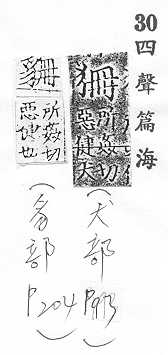 30 四聲篇海
狦 所姦切
惡健犬
(犬部
所姦切
惡健也
(豸部 P204)